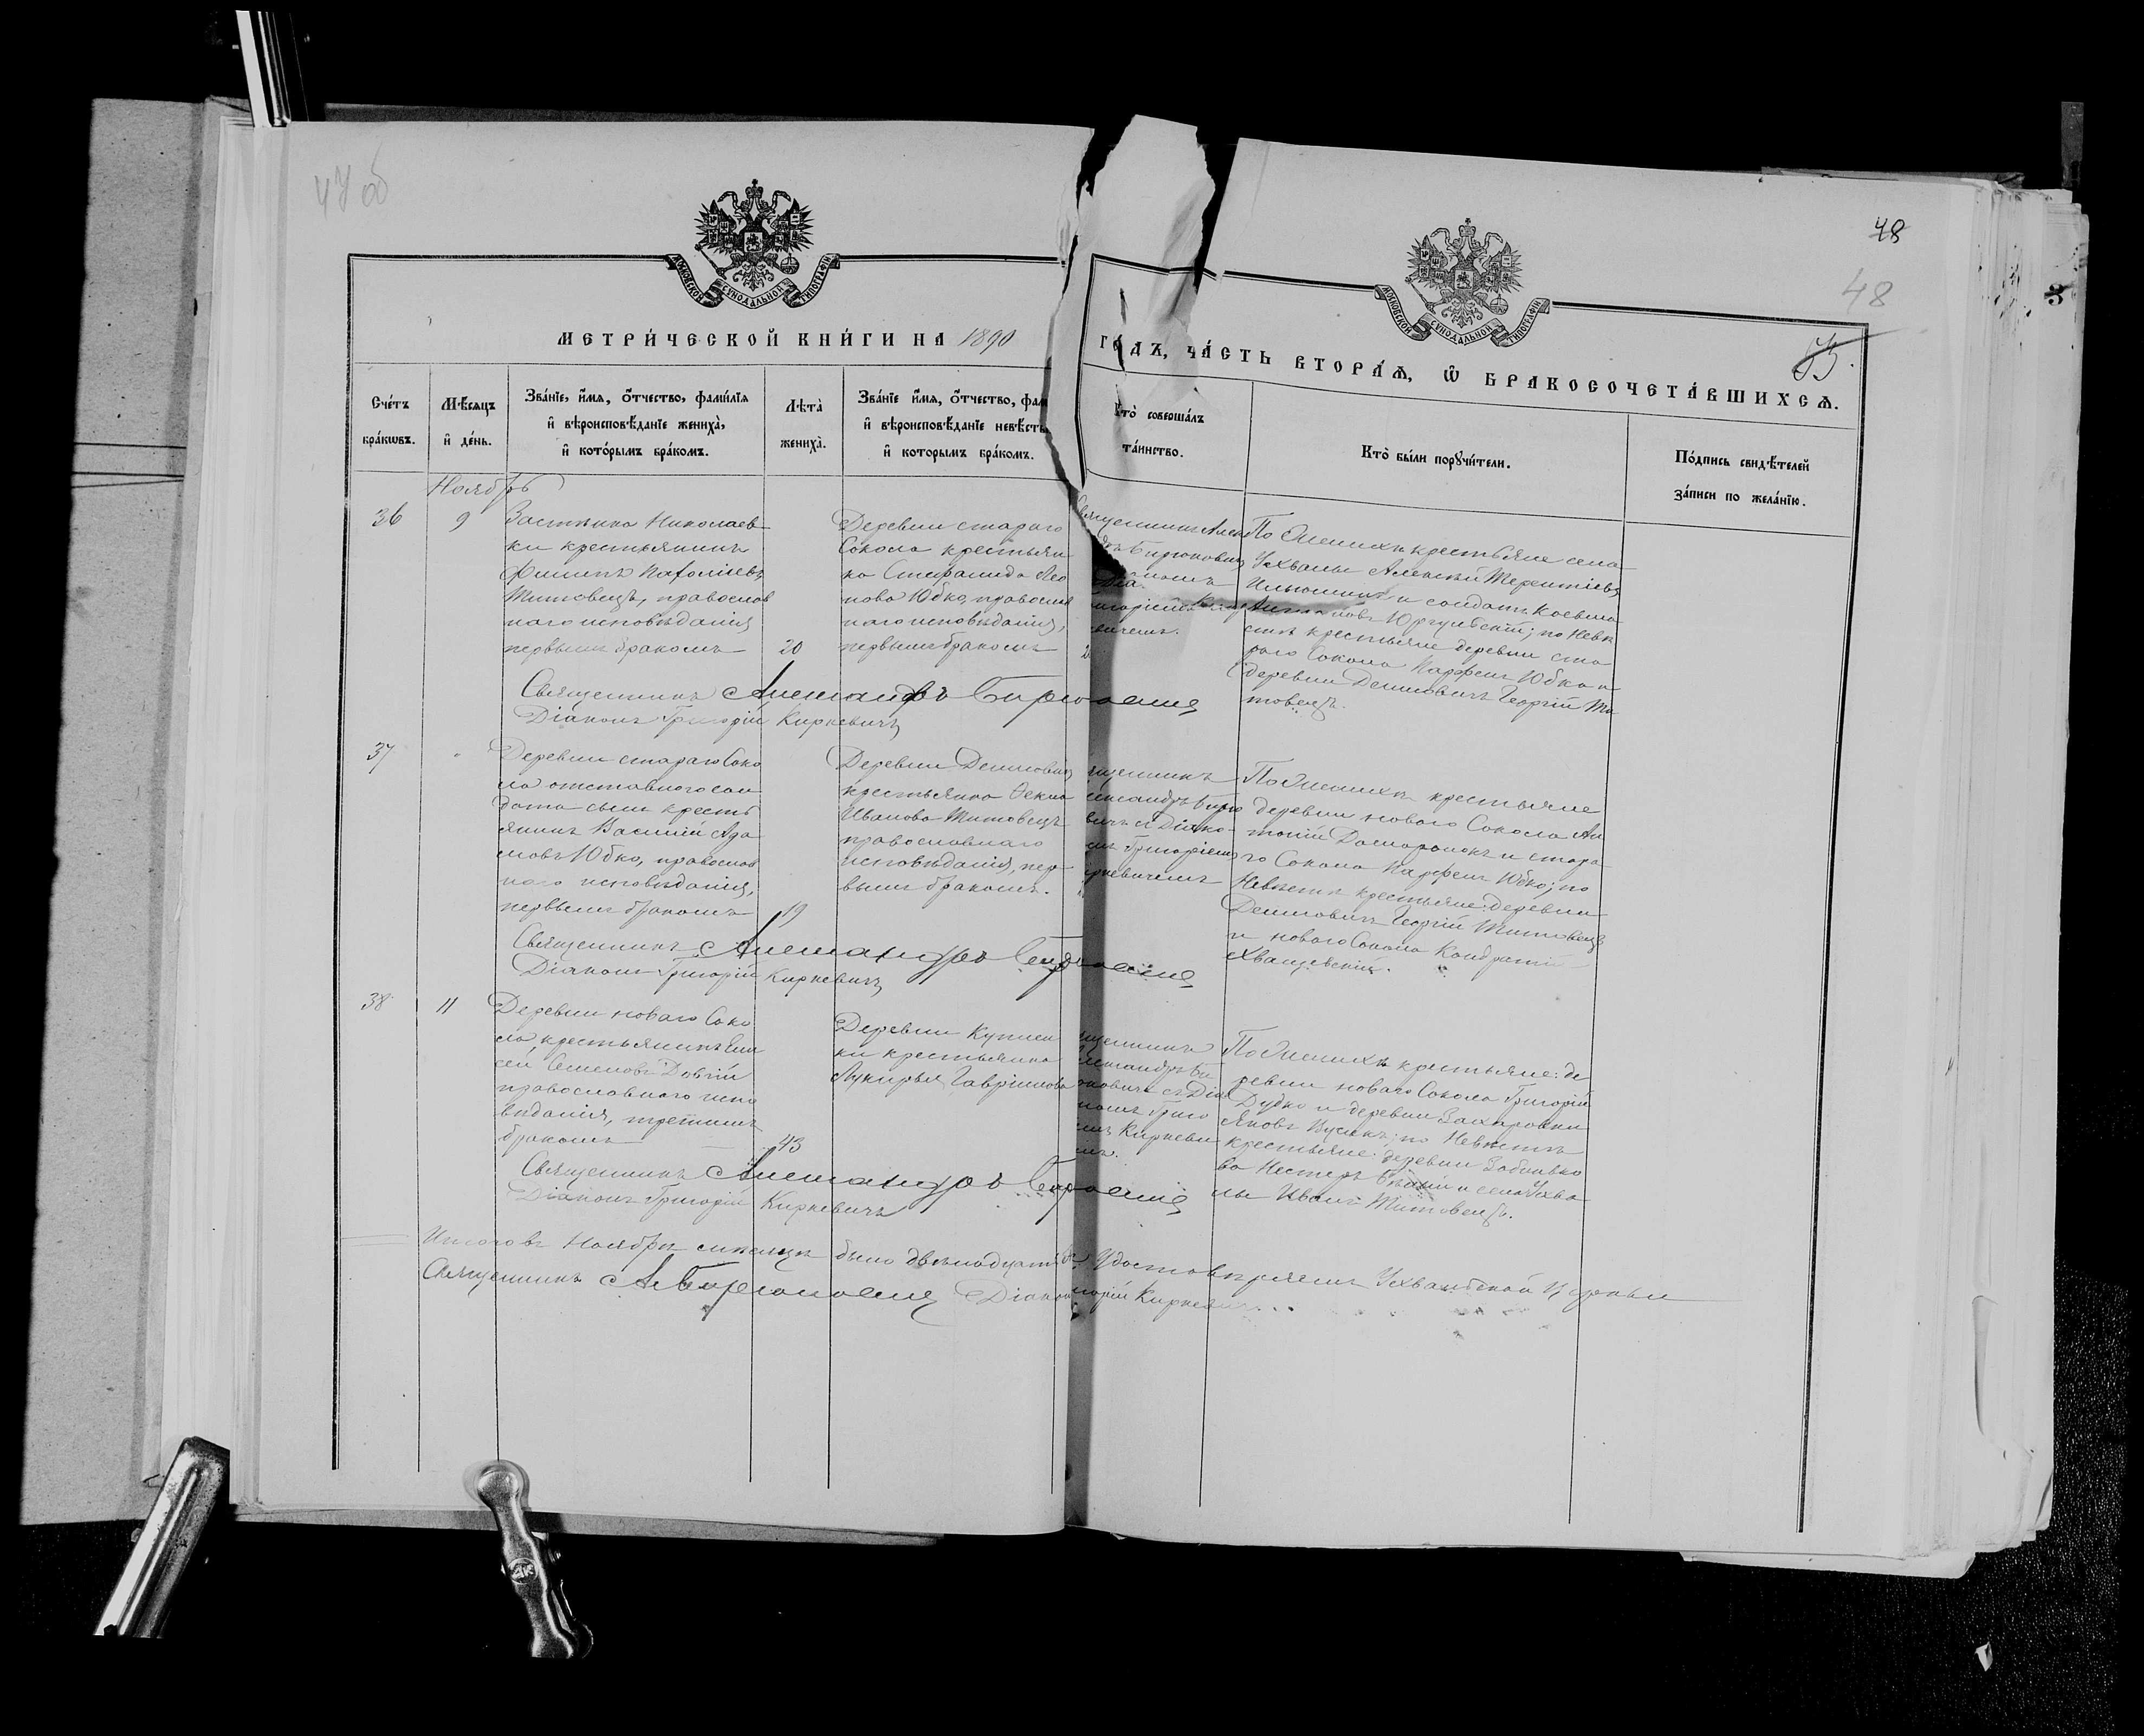 47 об
48
48
55.
МОСКОВСКОЙ СѴНОДАЛЬНОЙ ТИПОГРАФІИ
МОСКОВСКОЙ СѴНОДАЛЬНОЙ ТИПОГРАФІИ
МЕТРИ́ЧЕСКОЙ КНИ́ГИ НА 1890
ГОДЪ, ЧА́СТЬ ВТОРА́Ѧ, Ѽ БРАКОСОЧЕТА́ВШИХСѦ.
Сче́тъ
бра́кωвъ.
Мѣ́сѧцъ
и҆ де́нь.
Зва́нїе, и҆́мѧ, о҆́тчество, фамилїѧ
и҆ вѣроисповѣ́данїе жениха̀,
и҆ кото́рымъ бра́комъ.
Лѣта̀
жениха̀.
Зва́нїе и҆́мѧ, о҆́тчество, фам
и҆ вѣроисповѣ́данїе невѣ́сты
и҆ которымъ бра́комъ.
Кто̀ соверша́лъ
та́инство.
Кто̀ бы́ли порꙋчи́тели.
По́дпись свидѣ́телей
за́писи по жела́нїю.
Ноябрь
36
9
Застѣнка Николаев-
ки крестьянинъ
Филипъ
Титовецъ, православ
наго исповѣданія
первымъ бракомъ
20
Деревни стараго
Сокола крестьян-
ка Стефанида Лео
нова Юбко, православ
наго исповѣданія,
первымъ бракомъ
Священникъ Алек
Бирюковичъ
Григоріемъ
вичемъ.
По Женихѣ крестьяне села
Ухвалы Алексѣй Терентіевъ
и солдатъ
по Невѣ
стѣ крестьяне деревни ста
раго Сокола Парфенъ Юбко и
деревни Денисовичъ Георгій Ти
товецъ.
Священникъ Александръ Бирюковичъ
Діаконъ Григорій Киркевичъ
37
Деревни стараго Соко
ла отставного сол
дата сынъ кресть
янинъ Василій Ада
мовъ Юбко, православ
наго исповѣданія,
первымъ бракомъ
19
Деревни Денисовичъ
крестьянка Ѳекла
Иванова Титовецъ
православнаго
исповѣданія, пер-
вымъ бракомъ.
щенникъ
лександръ Бирю
вичъ съ Діако-
мъ Григоріемъ
ркевичемъ
По Женихѣ крестьяне
деревни новаго Сокола Ан
тоній и стара
го Сокола Парфенъ Юбко; по
Невѣстѣ крестьяне: деревни
Денисовичъ Георгій Титовецъ
и новаго Сокола Кондратій
Хващевскій.
Священникъ Александръ Бирюковичъ
Діаконъ Григорій Киркевичъ
38
11
Деревни новаго Соко
ла, крестьянинъ Ели
сей Семеновъ Довгій
православнаго испо
вѣданія, третьимъ
бракомъ
43
Деревни Куплен
ки крестьянка
Лукирья Гавріилова
щенникъ
лександръ Би
юковичъ съ Діа
кономъ Григо
емъ Киркеви
мъ.
По Женихѣ крестьяне: де
ревни новаго Сокола Григорій
Дудко и деревни
Яковъ по Невѣстѣ
крестьяне: деревни
во Несторъ и села Ухва
лы Иванъ Титовецъ.
Священникъ Александръ Бирюковичъ
Діаконъ Григорій Киркевичъ
Итого въ Ноябрѣ мѣсяцѣ было двѣнадцать Удостовѣряемъ Ухвальской Церкви
Священникъ А. Бирюковичъ Діаконъ Григорій Киркевичъ